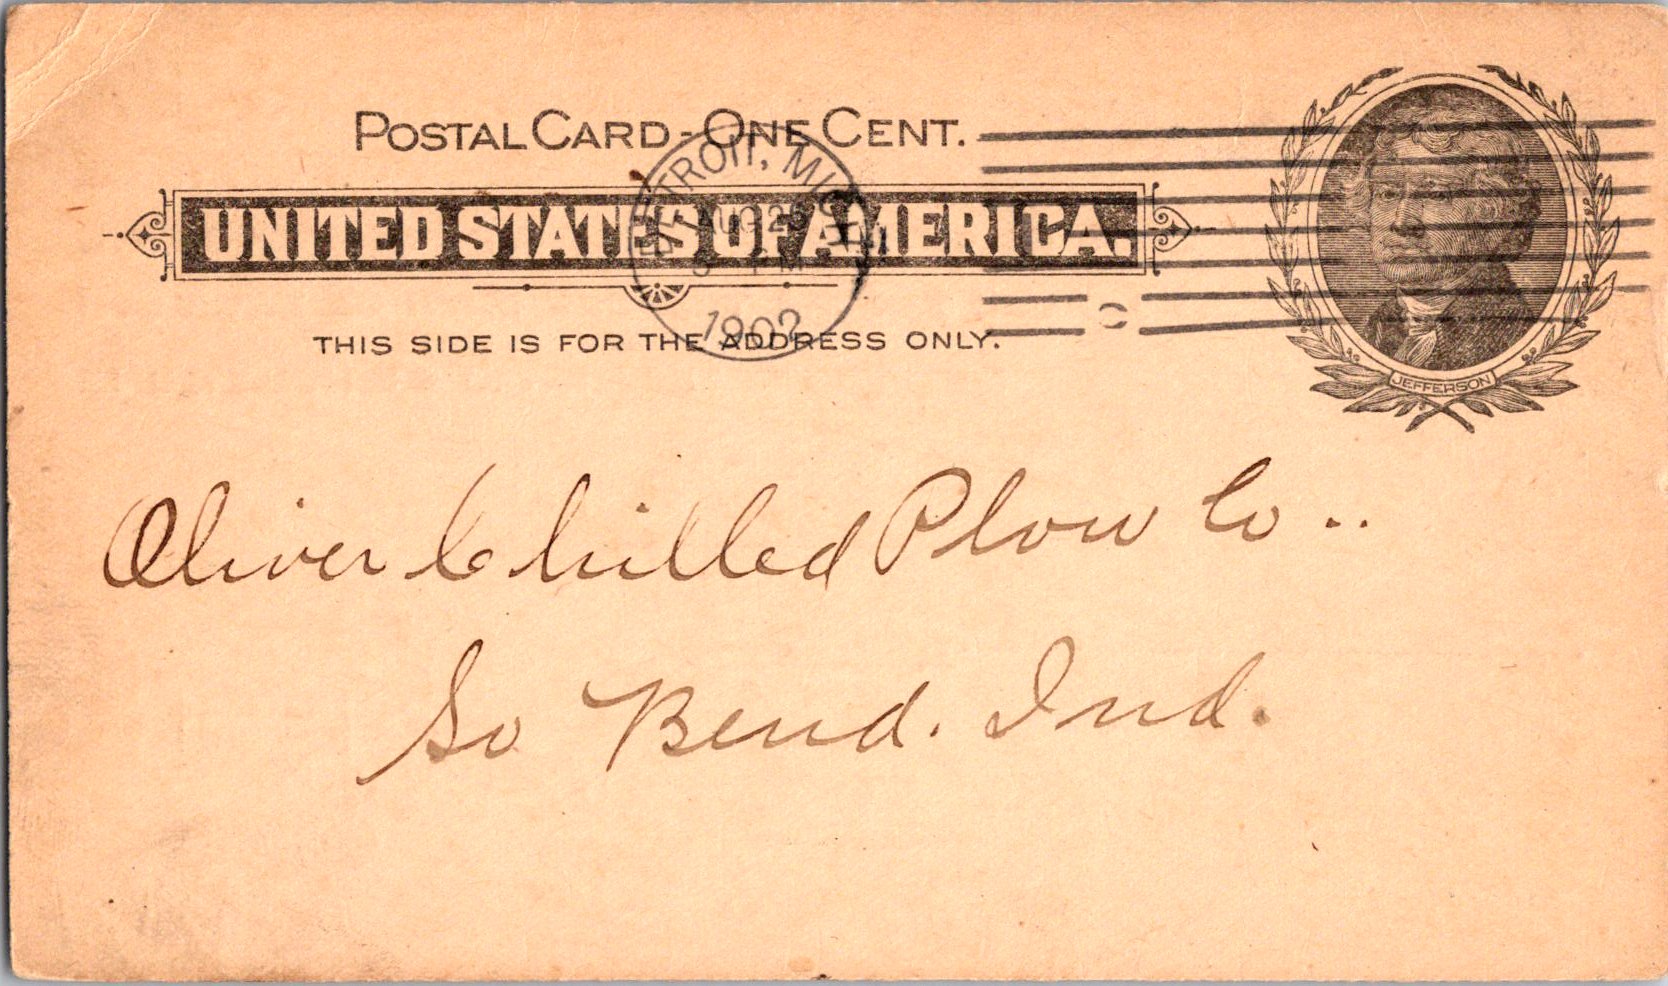 POSTAL CARD - ONE CENT.
UNITED STATES OF AMERICA.
THIS SIDE IS FOR THE ADDRESS ONLY.
DETROIT, MICH.
AUG 25
PM
1902
JEFFERSON
Oliver Chilled Plow Co..
So Bend. Ind.